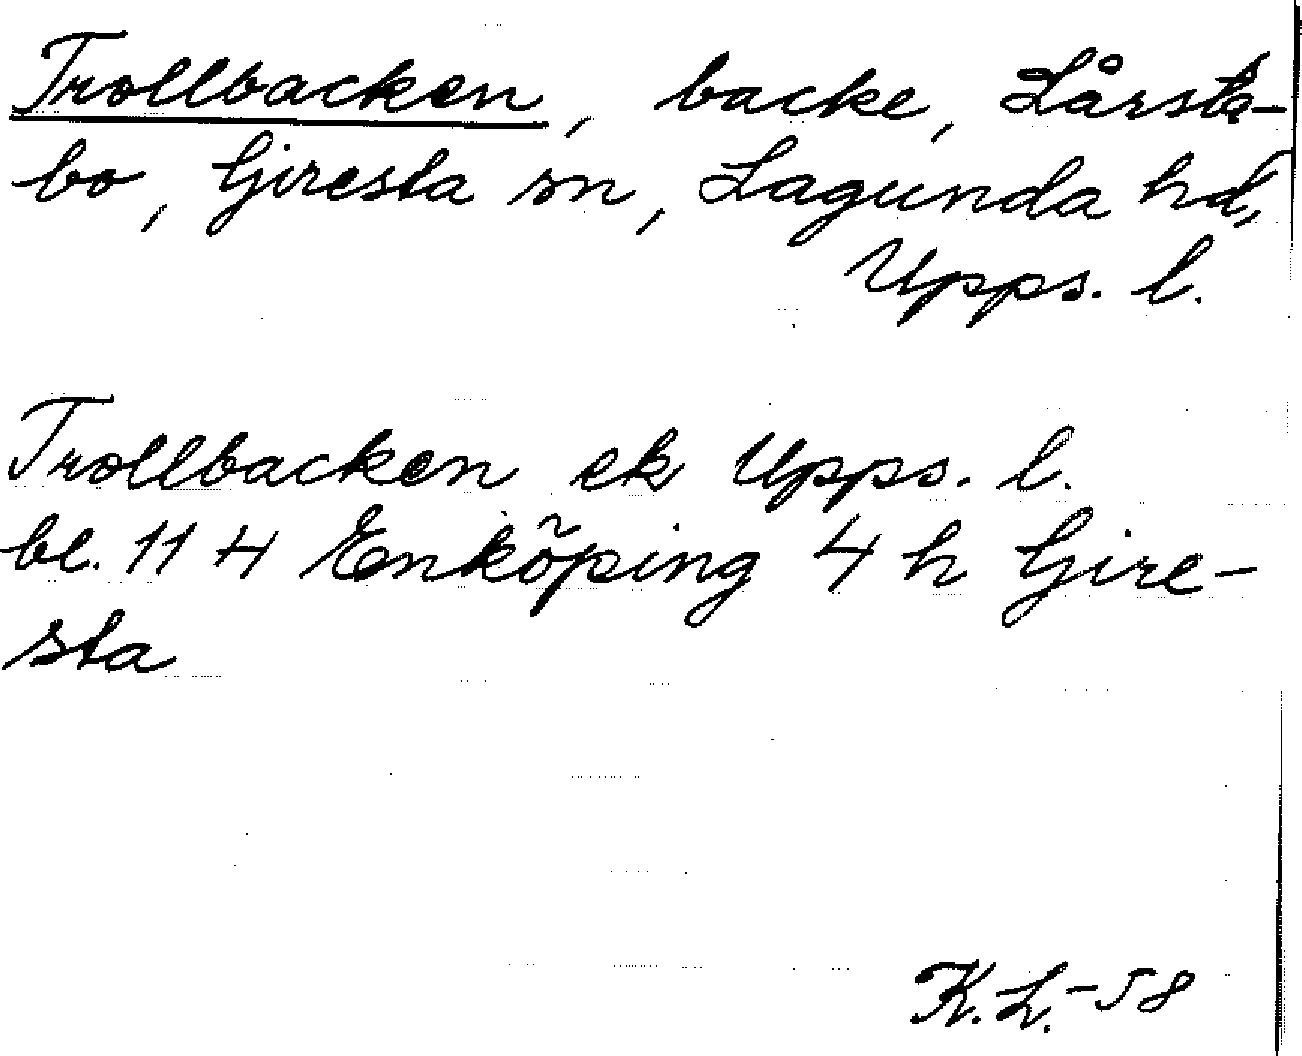 Trollbacken, backe, Lårsta-
bo, Giresta sn, Lagunda hd,
Upps. l.
Trollbacken ek Upps. l.
bl. 114 Enköping 4 h Gire-
sta
K.L.-58